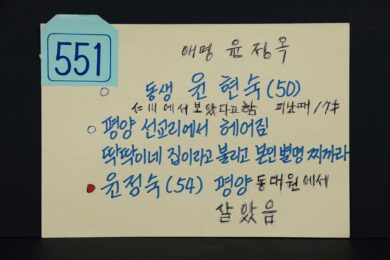 551
애명 윤정옥
동생 윤현숙(50)
仁川에서 보았다고함 피난때 17才
평양 선교리에서 헤어짐
딱딱이네 집이라고 불리고 본인별명 찌까라
윤정숙(54) 평양 동대원에서
살았음